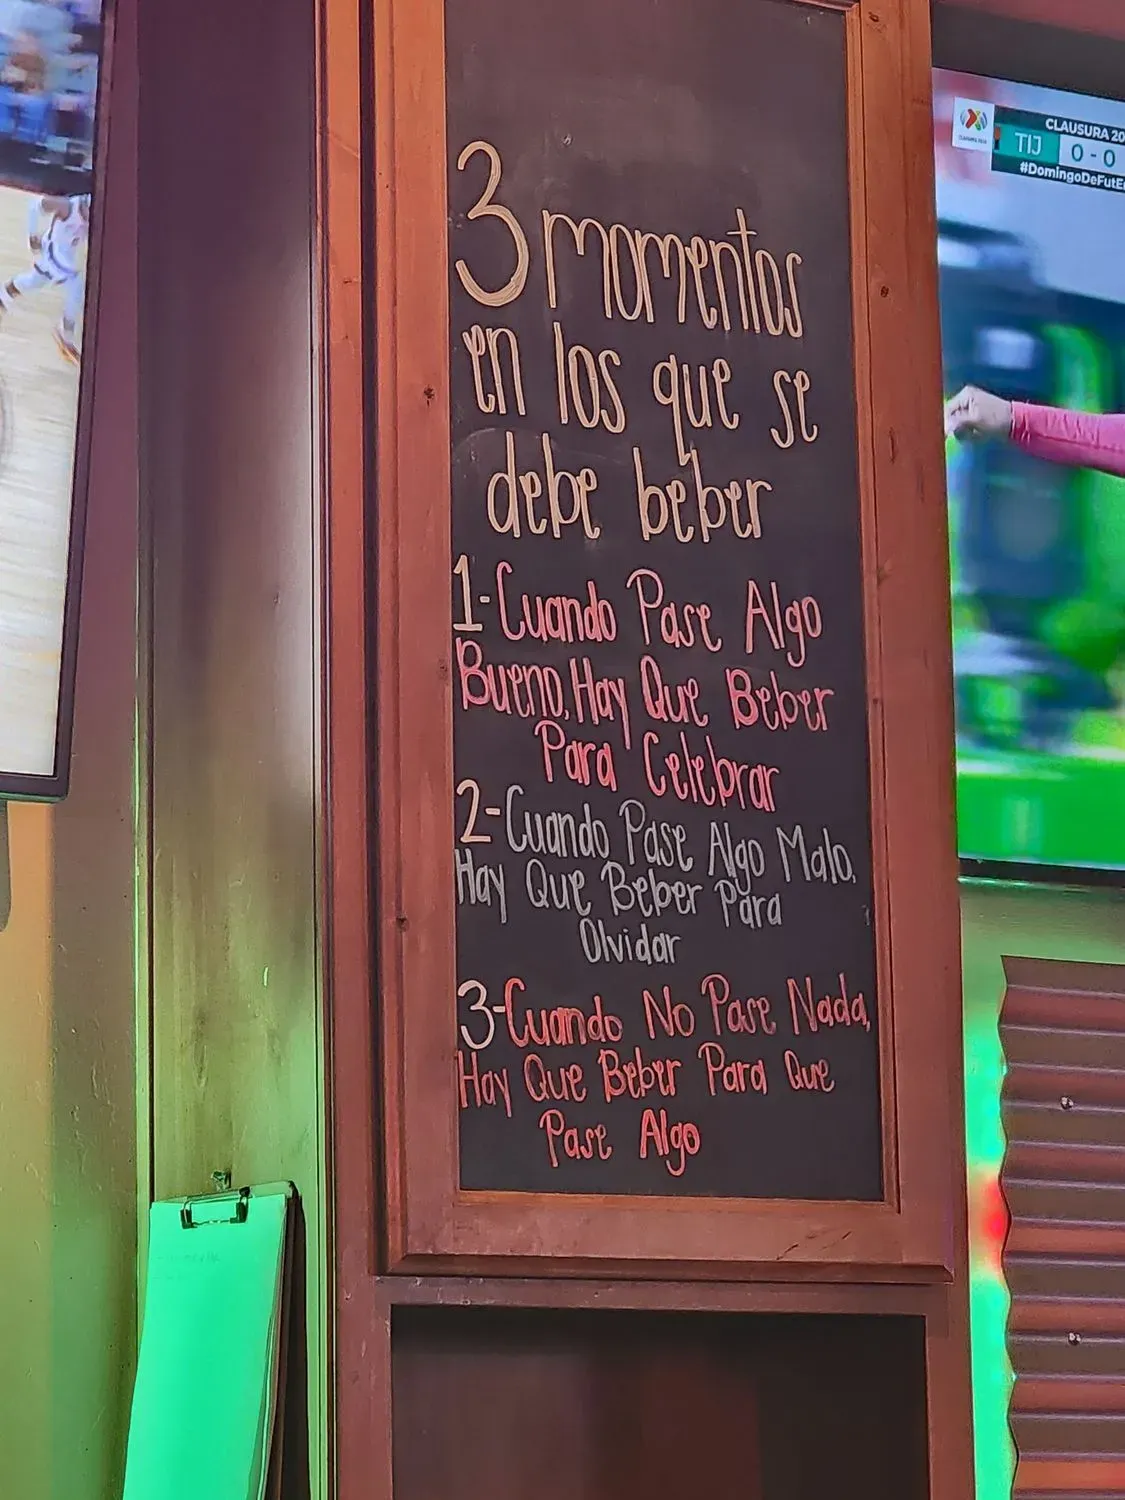 3 momentos
en los que se
debe beber
1-Cuando Pase Algo
Bueno, Hay Que Beber
Para Celebrar
2-Cuando Pase Algo Malo,
Hay Que Beber Para
Olvidar
3-Cuando No Pase Nada,
Hay Que Beber Para Que
Pase Algo
CLAUSURA 20
TIJ 0 - 0
#DomingoDeFutE